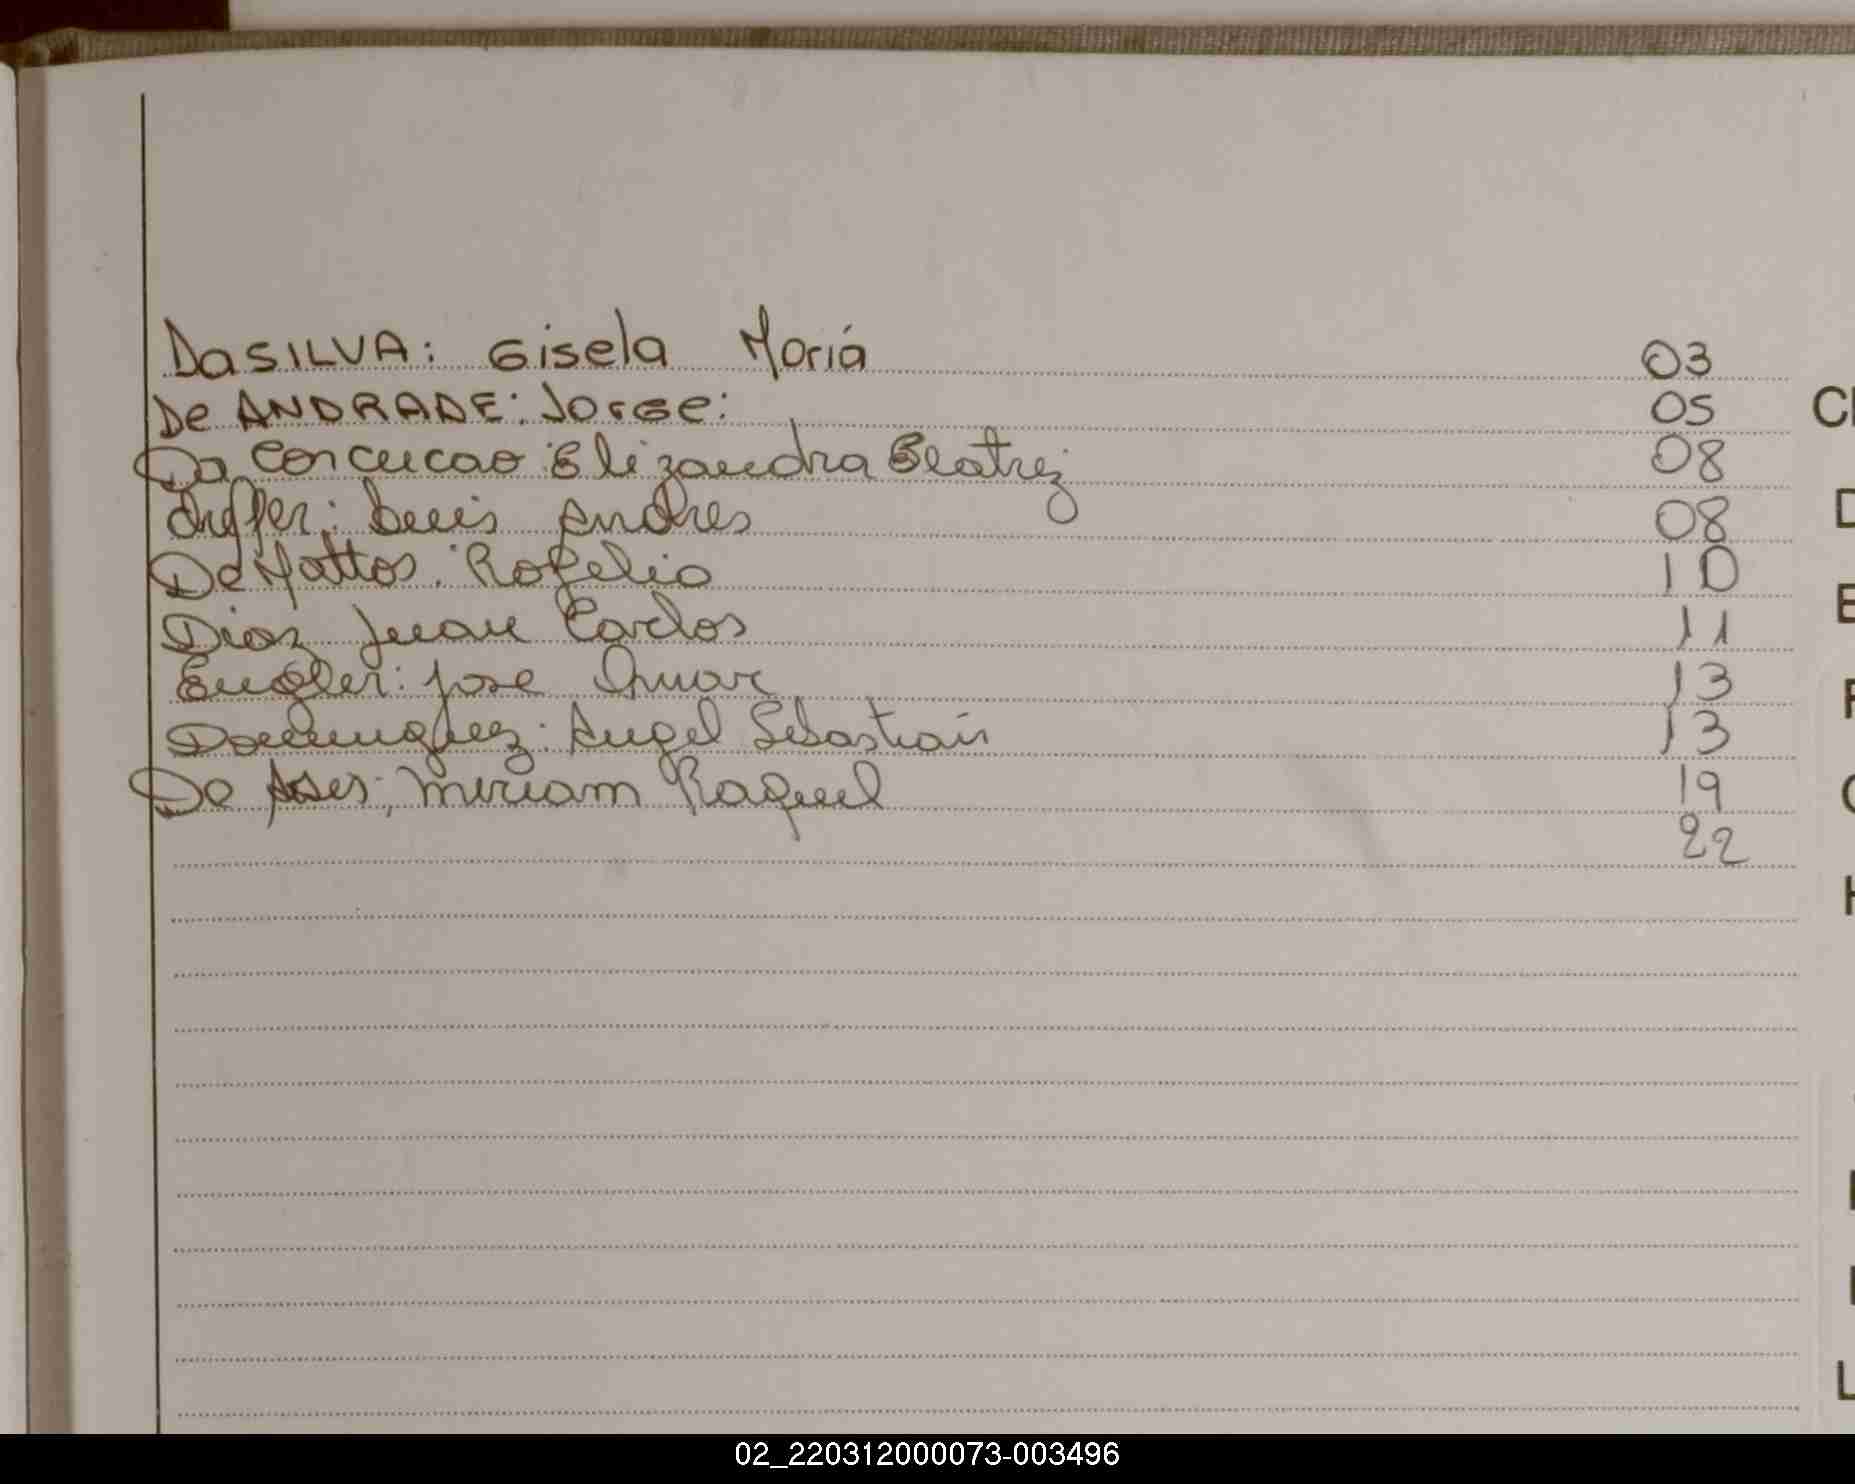 DaSILVA: Gisela Moriá 03
De ANDRADE: Jorge: 05
Da Concucao: Elizandra Beatriz 08
Luis Andres 08
De Mattos: Rogelio 10
Diaz Juan Carlos 11
Engler: Jose Omar 13
Dominguez: Angel Sebastian 13
De Miriam Raquel 19
22
D
E
F
H
L
02_220312000073-003496